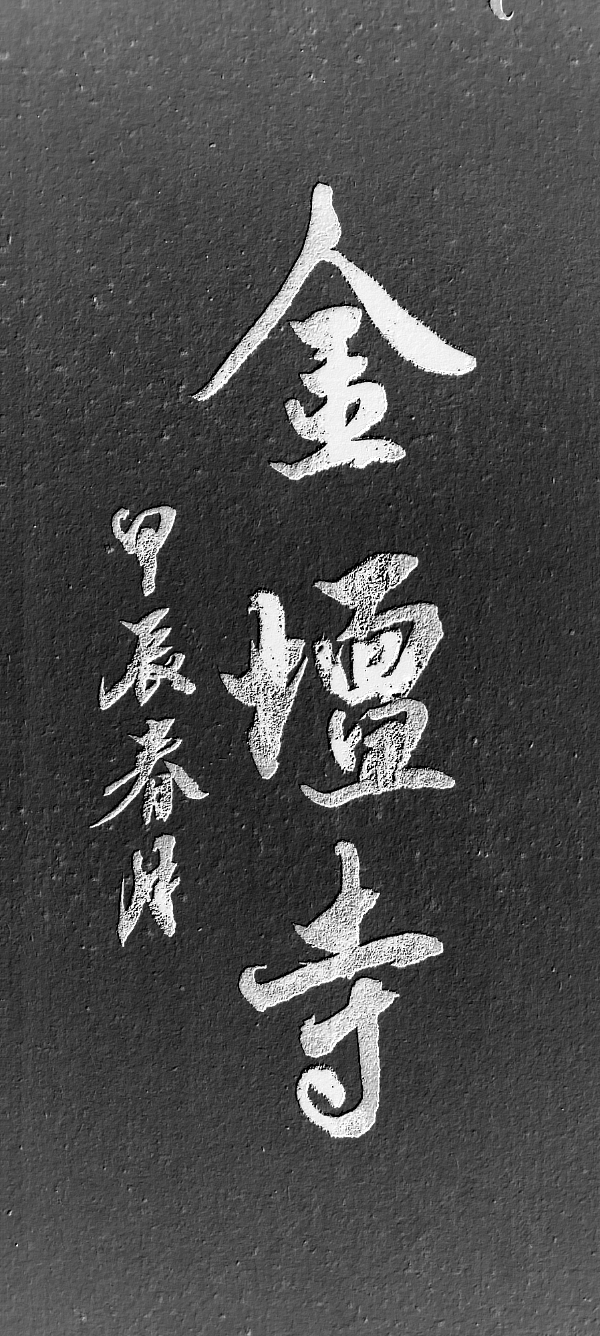 金壇寺
甲辰春月